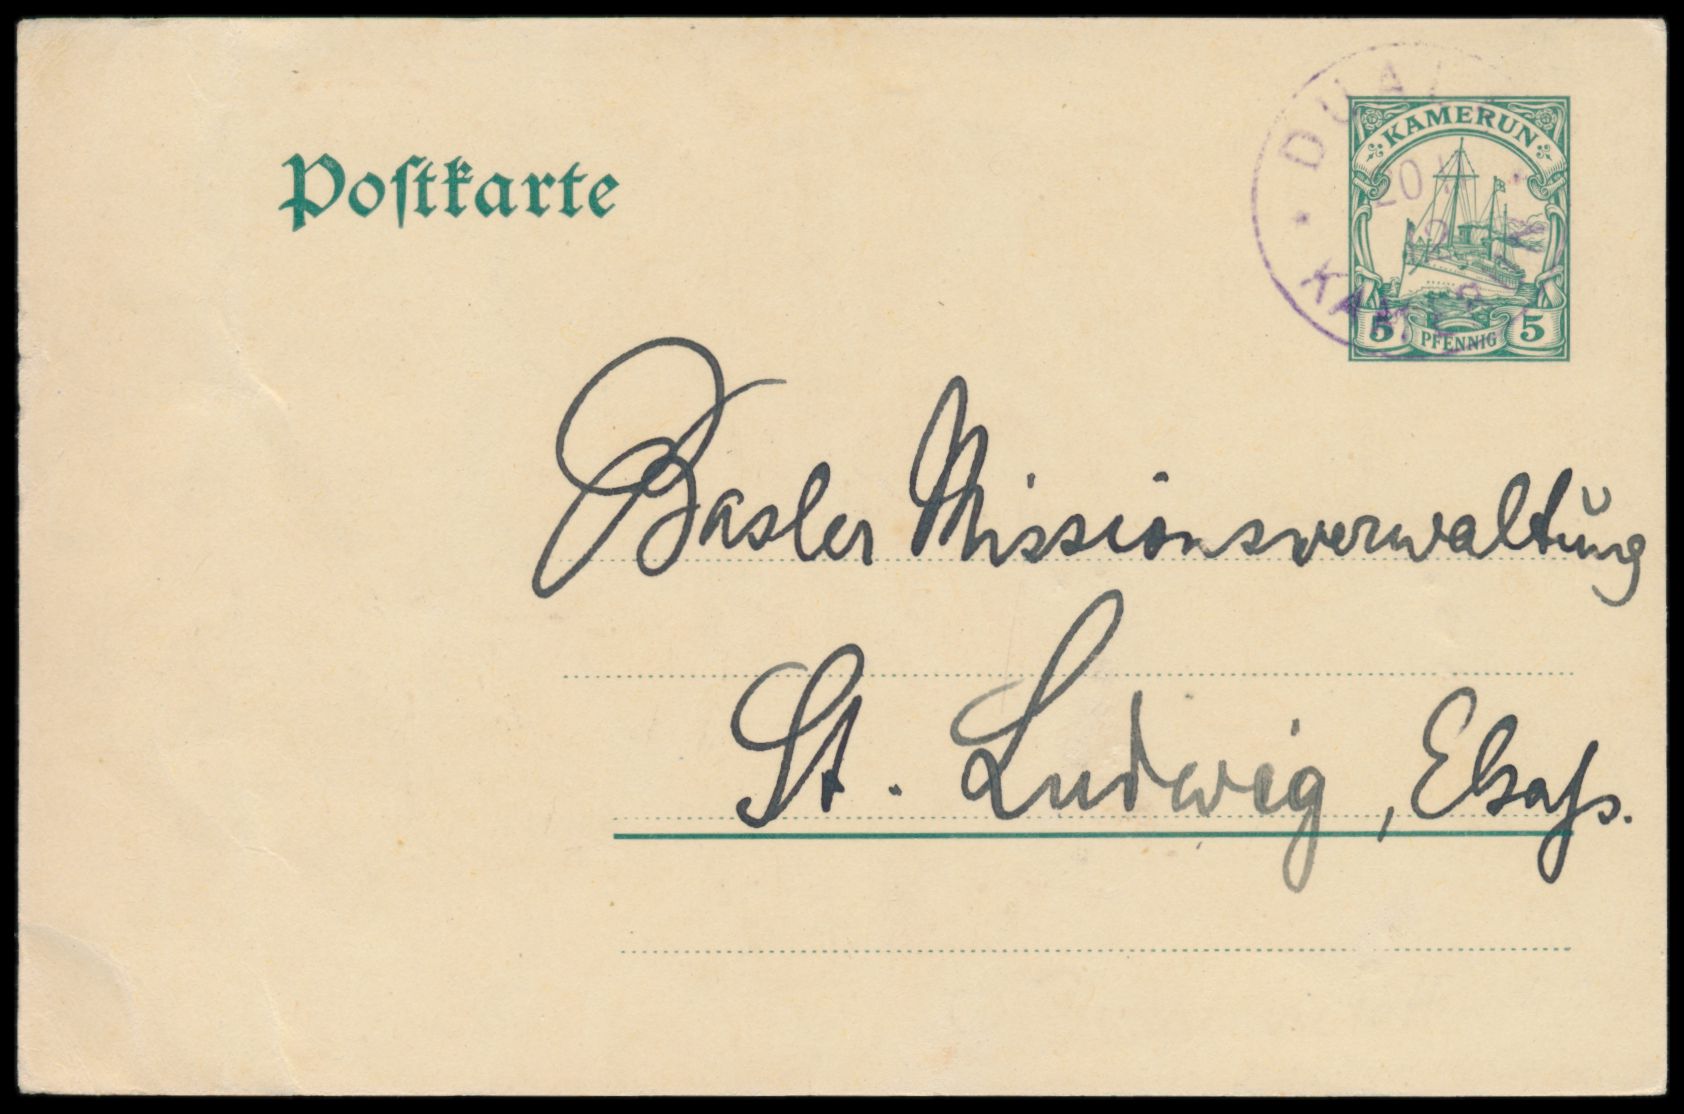 Postkarte
KAMERUN
5 PFENNIG 5
Basler Missionsverwaltung
St. Ludwig, Elsass.